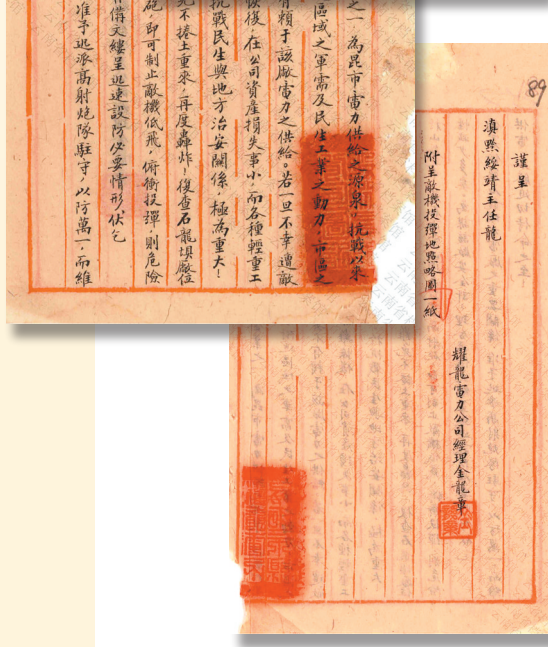 之一，為昆市電力供給之源泉，抗戰以來
區域之軍需及民生工業之動力，市區之
有賴于該廠電力之供給。若一旦不幸遭敵
恢復，在公司資產損失事小，而各種輕重工
抗戰民生與地方治安關係，極為重大！
免不捲土重來，再度轟炸！復查石龍壩廠位
砲，即可制止敵機低飛，俯衝投彈，則危險
備文縷呈迅速設防必要情形，伏乞
准予迅派高射炮隊駐守，以防萬一，而維
89
謹呈
滇黔綏靖主任龍
附呈敵機投彈地點略圖一紙
耀龍電力公司經理金龍章